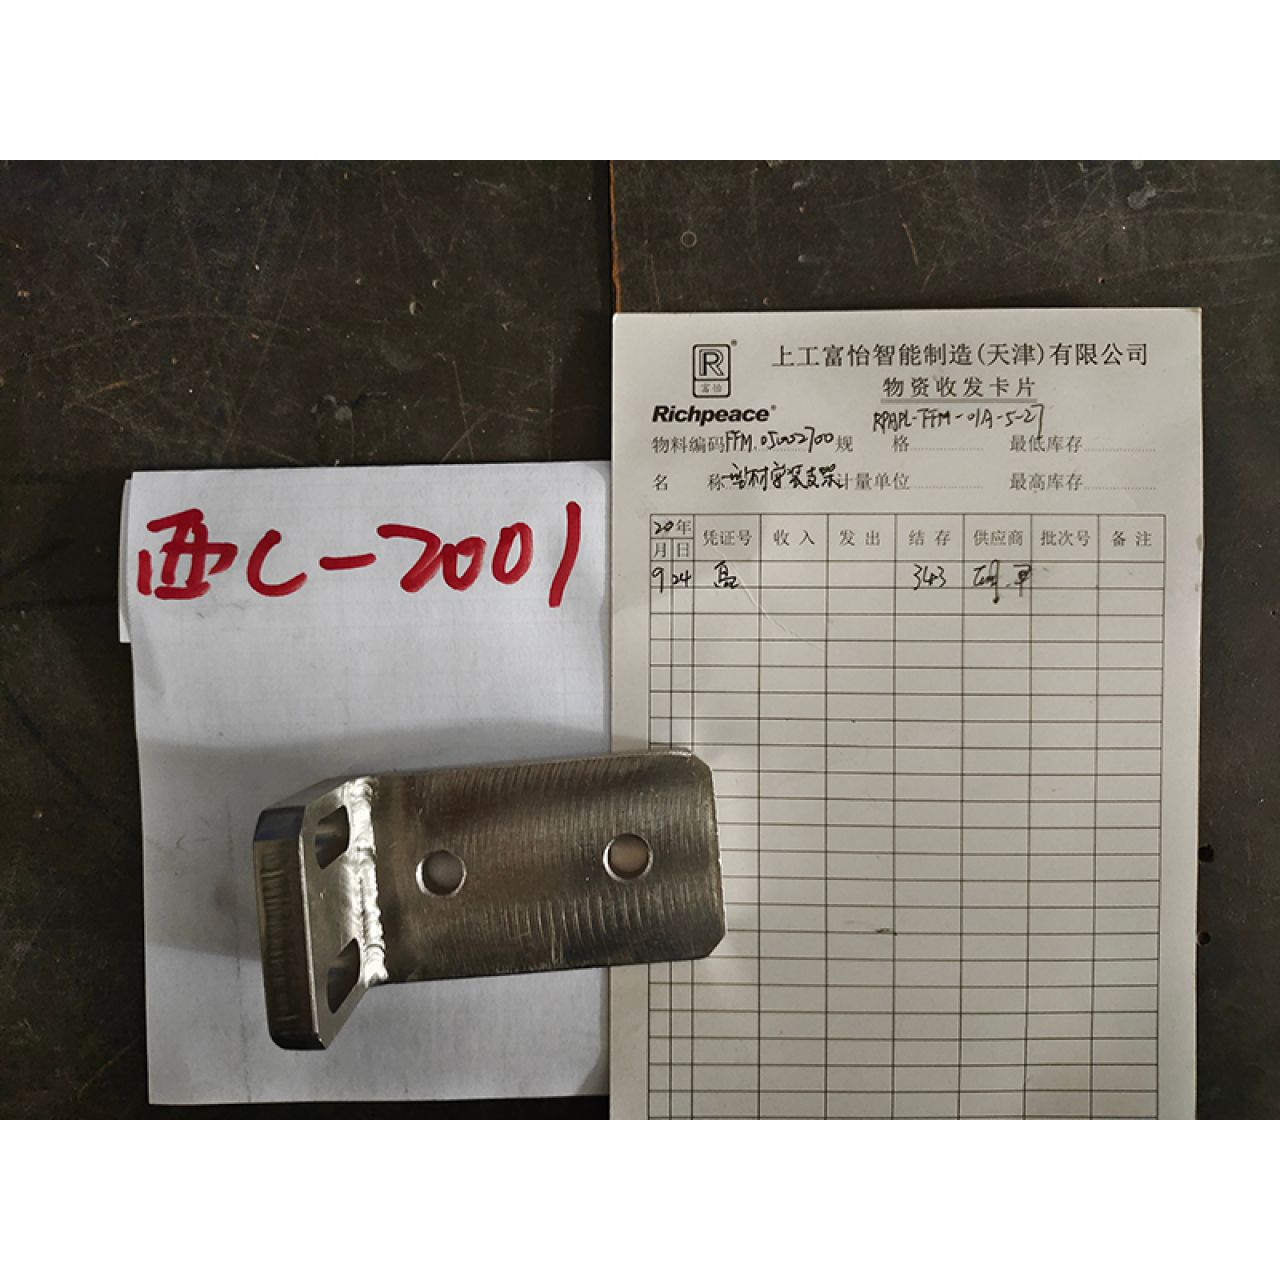 西C-2001
R®
富怡
Richpeace®
上工富怡智能制造(天津)有限公司
物资收发卡片
RPAPL-FFM-01A-5-27
物料编码FFM.05002700规 格 最低库存
名 称 型材安装支架计量单位 最高库存
20年 凭证号 收入 发出 结存 供应商 批次号 备注
月 日
9 24 343